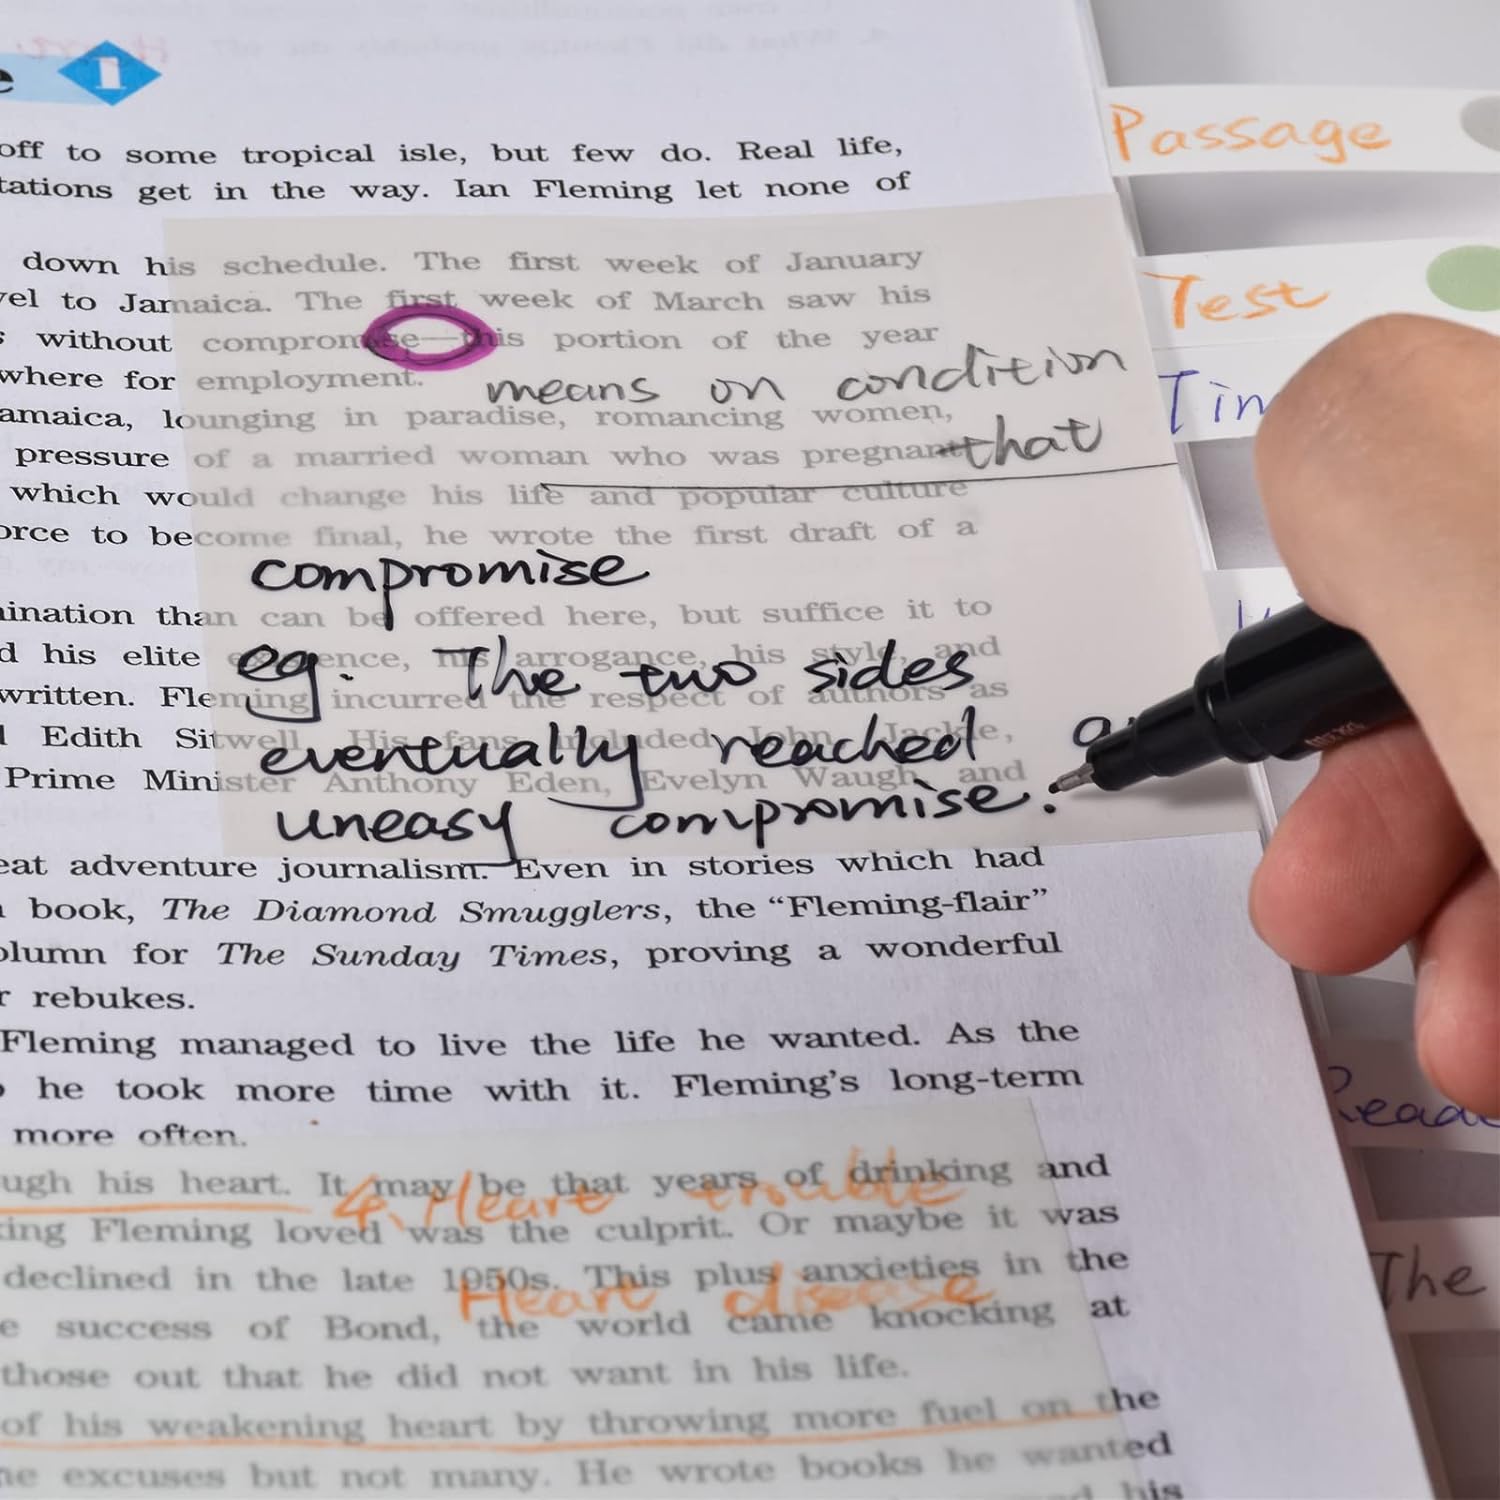 e 1
off to some tropical isle, but few do. Real life,
tations get in the way. Ian Fleming let none of
down his schedule. The first week of January
vel to Jamaica. The first week of March saw his
s without compromise—this portion of the year
where for employment.
means on condition
amaica, lounging in paradise, romancing women,
pressure of a married woman who was pregnant
that
which would change his life and popular culture
orce to become final, he wrote the first draft of a
compromise
mination than can be offered here, but suffice it to
d his elite existence, his arrogance, his style, and
eg. The two sides
written. Fleming incurred the respect of authors as
d Edith Sitwell. His fans included John Jackie,
eventually reached a
Prime Minister Anthony Eden, Evelyn Waugh, and
uneasy compromise.
eat adventure journalism. Even in stories which had
n book, The Diamond Smugglers, the “Fleming-flair”
olumn for The Sunday Times, proving a wonderful
r rebukes.
Fleming managed to live the life he wanted. As the
o he took more time with it. Fleming’s long-term
more often.
ugh his heart. It may be that years of drinking and
4. Heart trouble
king Fleming loved was the culprit. Or maybe it was
declined in the late 1950s. This plus anxieties in the
Heart disease
e success of Bond, the world came knocking at
those out that he did not want in his life.
of his weakening heart by throwing more fuel on the
me excuses but not many. He wrote books he wanted
his
Passage
Test
Tim
Read
The